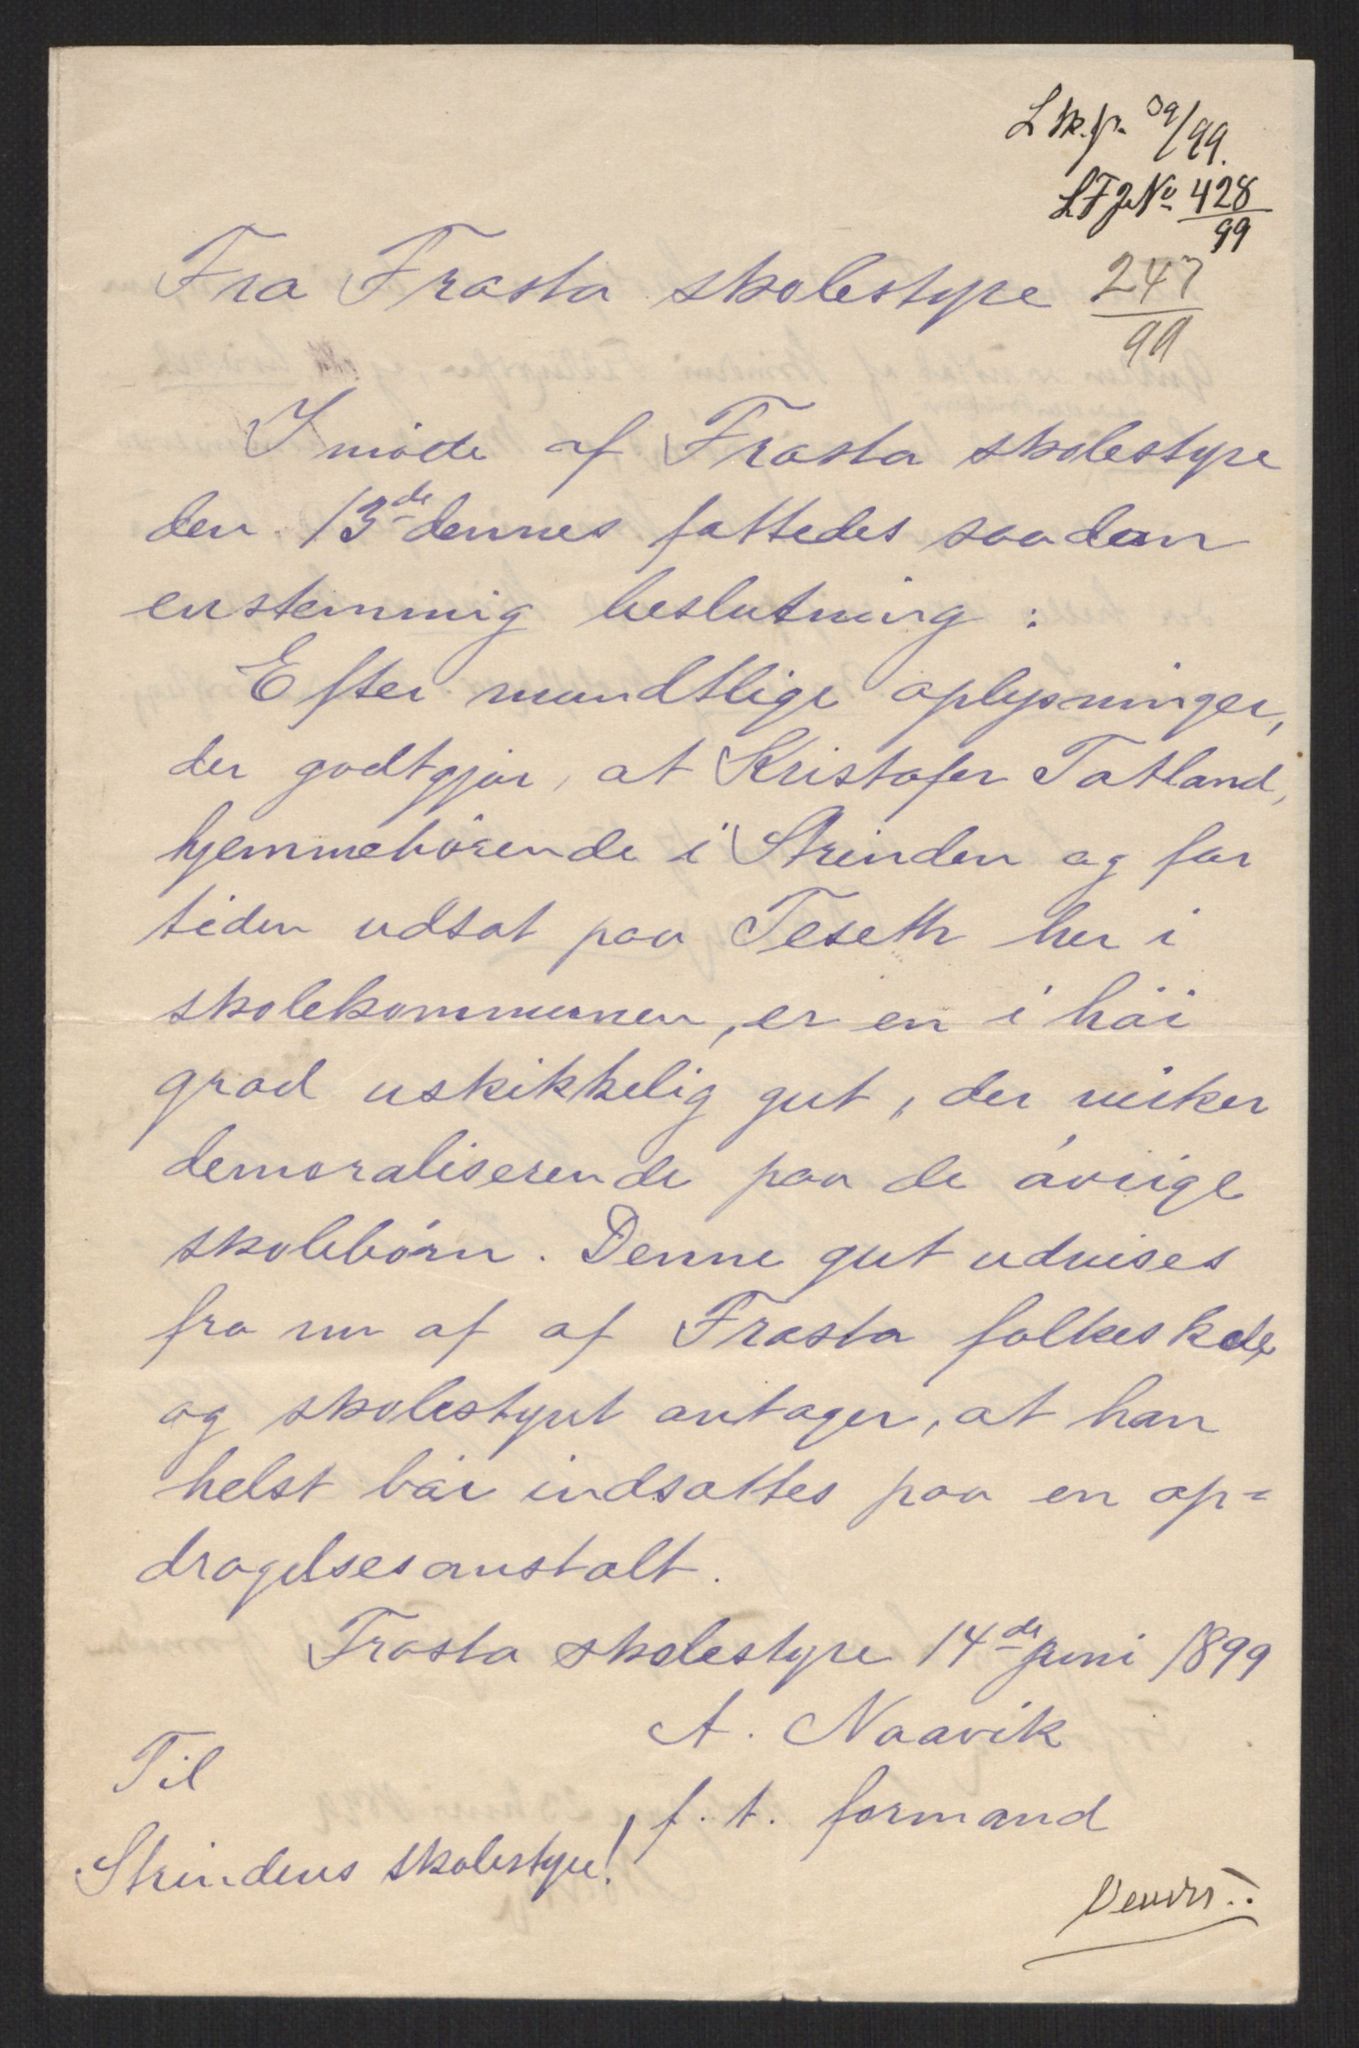 L sk. p. 39/99.
LFJNo 428/99
Fra Frosta skolestyre 247/99
I møde af Frosta skolestyre
den 13de dennes fattedes saadan
enstemmig beslutning:
Efter mundtlige oplysninger,
der godtgjør, at Kristofer Tatland,
hjemmehørende i Strinden og for
tiden udsat paa Teseth her i
skolekommunen, er en i høi
grad uskikkelig gut, der virker
demoraliserende paa de øvrige
skolebørn. Denne gut udvises
fra nu af af Frosta folkeskole,
og skolestyret antager, at han
helst bør indsættes paa en op=
dragelsesanstalt.
Frosta skolestyre 14de juni 1899
A. Naavik
f. t. formand
Til
Strindens skolestyre!
Vend!